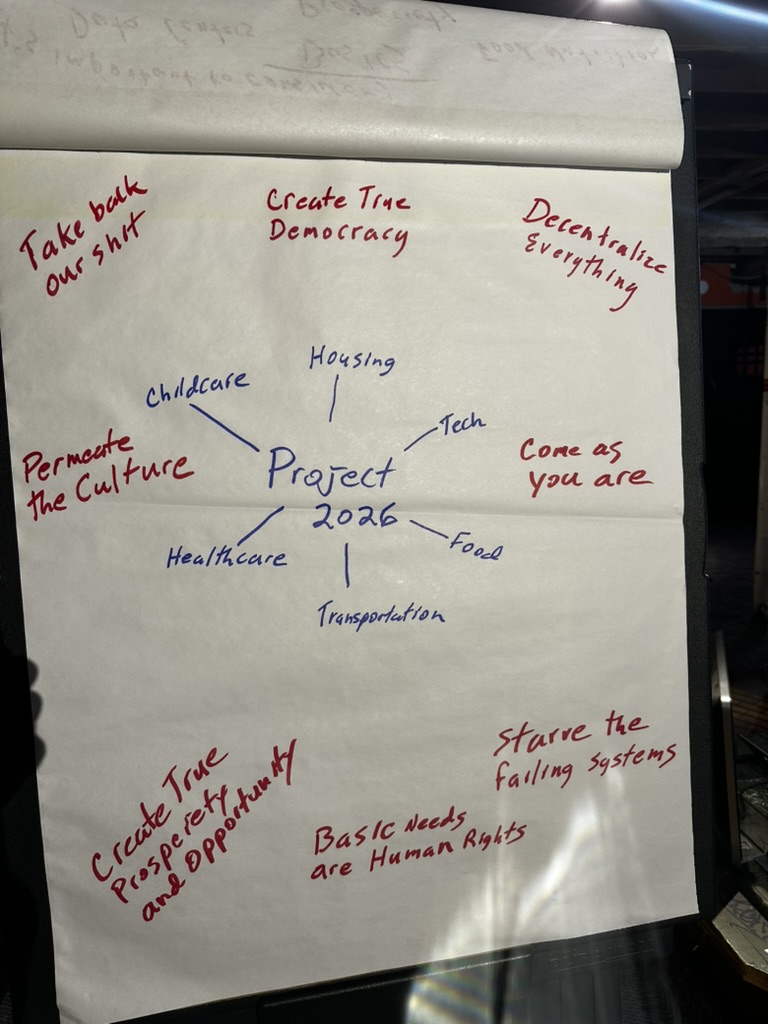 Data Centers
Take back
our shit
Create True
Democracy
Decentralize
Everything
Childcare
Housing
Tech
Permeate
the Culture
Project
2026
Come as
you are
Healthcare
Food
Transportation
Create True
Prosperety
and Opportunity
Basic Needs
are Human Rights
Starve the
failing systems